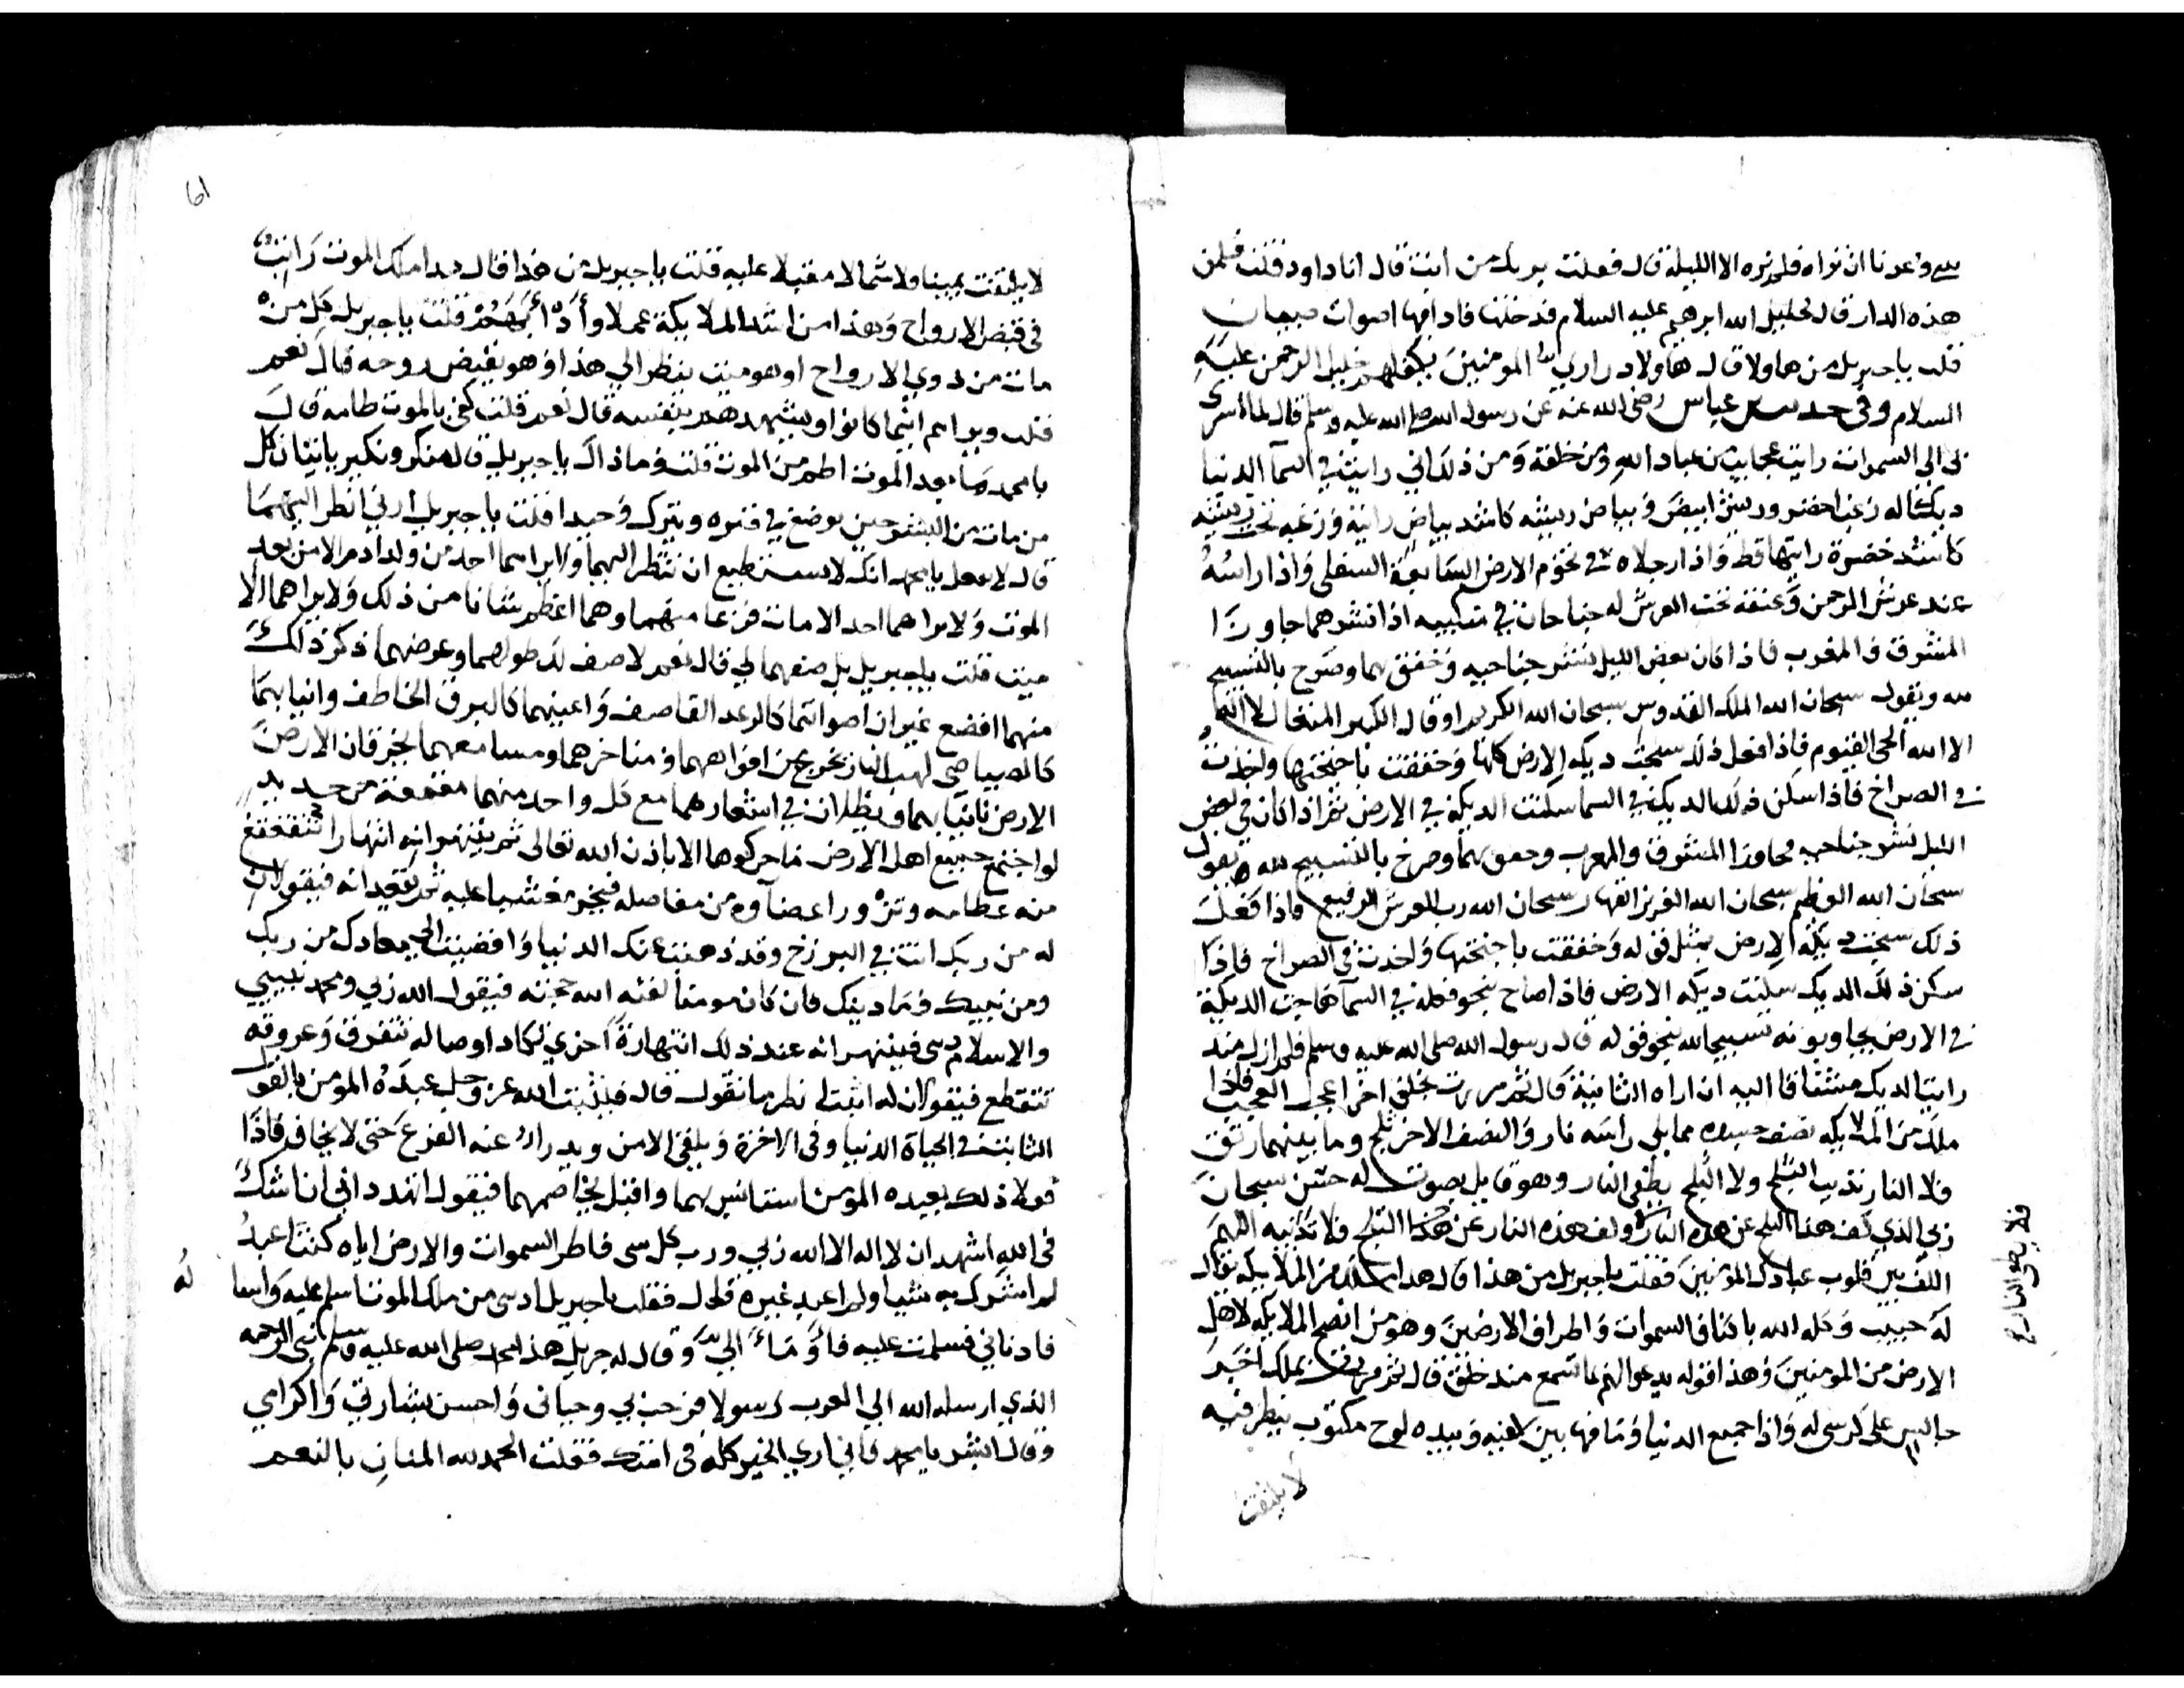 وعدنا ان نراه فلم نره الا الليلة قال فعلت بربك من انت قال انا داود فقلت فلمن
هذه الدار قال لخليل الله ابرهيم عليه السلام فدخلتها فاذا فيها اصوات صبيان
قلت يا جبريل من هاولا قال هاولا دراري المومنين يكفلهم خليل الرحمن عليه
السلام وفي حديث عباس رضي الله عنه عن رسول الله صلى الله عليه وسلم قال لما اسرى
بي الى السموات رايت عجايب من عباد الله ومن خلقه ومن ذلك اني رايت في السما الدنيا
ديكا له زغب اخضر وريش ابيض وبياض ريشه كاشد بياض رايته وزغبه تحت ريشه
كاشد خضرة رايتها قط واذا رجلاه في تخوم الارض السابعة السفلى واذا راسه
عند عرش الرحمن وعنقه تحت العرش له جناحان في منكبيه اذا نشرهما جاوزا
المشرق والمغرب فاذا كان بعض الليل نشر جناحيه وخفق بهما وصرح بالتسبيح
لله ويقول سبحان الله الملك القدوس سبحان الله الكريم او قال الكبير المتعال لا اله
الا الله الحي القيوم فاذا فعل ذلك سبحت ديكة الارض كلها وخفقت باجنحتها واخذت
في الصراخ فاذا سكن ذلك الديك في السما سكنت الديكة في الارض ثم اذا كان في بعض
الليل نشر جناحيه مجاوزا المشرق والمغرب وخفق بهما وصرخ بالتسبيح لله ويقول
سبحان الله العظيم سبحان الله العزيز القهار سبحان الله رب العرش الرفيع فاذا فعل
ذلك سبحت ديكة الارض بمثل قوله وخفقت باجنحتها واخذت في الصراخ فاذا
سكن ذلك الديك سكنت ديكة الارض فاذا صاح بنحو فعله في السما هاجت الديكة
في الارض يجاوبونه تسبيحا لله بنحو قوله قال رسول الله صلى الله عليه وسلم فلم ازل منذ
رايت الديك مشتاقا اليه ان اراه الثانية قال ثم مررت بخلق اخر اعجب العجب فاذا
ملك من الملايكه نصف جسده مما يلي راسه نار والنصف الاخر ثلج وما بينهما رتق
فلا النار تذيب الثلج ولا الثلج يطفي النار وهو قايل بصوت له حسن سبحان
ربي الذي كف هذا الثلج عن هذه النار وكف هذه النار عن هذا الثلج فلا تذيبه اللهم
الف بين قلوب عبادك المومنين فقلت يا جبريل من هذا قال هذا ملك من الملايكه يقال
له حبيب وكله الله باكناف السموات واطراف الارضين وهو من انصح الملايكه لاهل
الارض من المومنين وهذا قوله يدعوا لهم بما تسمع منذ خلق قال ثم مررت بملك اخر
جالس على كرسي له واذا جميع الدنيا وما فيها بين كفيه وبيده لوح مكتوب ينظر فيه
لا يلتفت
فلا يطفي النار
لا يلتفت يمينا ولا شمالا مقبلا عليه فقلت يا جبريل من هذا قال هذا ملك الموت
في قبض الارواح وهذا من اشد الملايكة عملا فقلت يا جبريل كل من
مات من ذوي الارواح او هو ميت ينظر الى هذا او هو يقبض روحه قال نعم
قلت ويراهم اينما كانوا ويشهدهم بنفسه قال نعم قلت كفى بالموت طامه قال
يا محمد ما بعد الموت اطم من الموت قلت وما ذاك يا جبريل قال منكر ونكير ياتيان كل
من مات من البشر حين يوضع في قبره ويترك وحيدا فقلت يا جبريل ارني انظر اليهما
قال لا تفعل يا محمد انك لا تستطيع ان تنظر اليهما ولا يراهما احد من ولد ادم الا من بعد
الموت ولا يراهما احد الا مات فزعا منهما وهما اعظم شانا من ذلك ولا يراهما الا
ميت قلت يا جبريل صفهما لي قال نعم لاصف لك طولهما وعرضهما ذكر ذلك
منهما افضع غير ان اصواتهما كالرعد القاصف واعينهما كالبرق الخاطف وانيابهما
كالصياصي لهب النار يخرج من افواههما ومناخرهما ومسامعهما يخرقان الارض
الارض بانيابهما ويطان في اشعارهما مع كل واحد منهما مقمعة من حديد
لو اجتمع جميع اهل الارض ما حركوها الا باذن الله تعالى ثم ينتهرانه انتهارا تتقعقع
منه عظامه وتزور اعضاوه من مفاصله فيخر مغشيا عليه ثم يقعدانه فيقولان
له من ربك انت في البرزخ وقد ذهبت عنك الدنيا وافضيت الى معادك من ربك
ومن نبيك وما دينك فان كان مومنا لقنه الله حجته فيقول الله ربي ومحمد نبيي
والاسلام ديني فينتهرانه عند ذلك انتهارة اخرى تكاد اوصاله تتفرق وعروقه
تتقطع فيقولان له اثبت انظر ما تقول قال فيثبت الله عز وجل عبده المومن بالقول
الثابت في الحياة الدنيا وفي الاخرة ويلقى الامن ويدرا عنه الفزع حتى لا يخافهما فاذا
فعلا ذلك بعبده المومن استانس بهما واقبل يخاصمهما فيقول اتهدداني ان اشك
في الله اشهد ان لا اله الا الله ربي ورب كل شي فاطر السموات والارض اياه كنت اعبد
لم اشرك به شيا ولم اعبد غيره قال فقلت يا جبريل ادنني من ملك الموت اسلم عليه واسا له
فادناني فسلمت عليه فاوما الي وقال له جبريل هذا محمد صلى الله عليه وسلم نبي الرحمه
الذي ارسله الله الى العرب رسولا فرحب بي وحياني واحسن بشارتي واكرامي
وقال ابشر يا محمد فاني ارى الخير كله في امتك فقلت الحمد لله المنان بالنعم